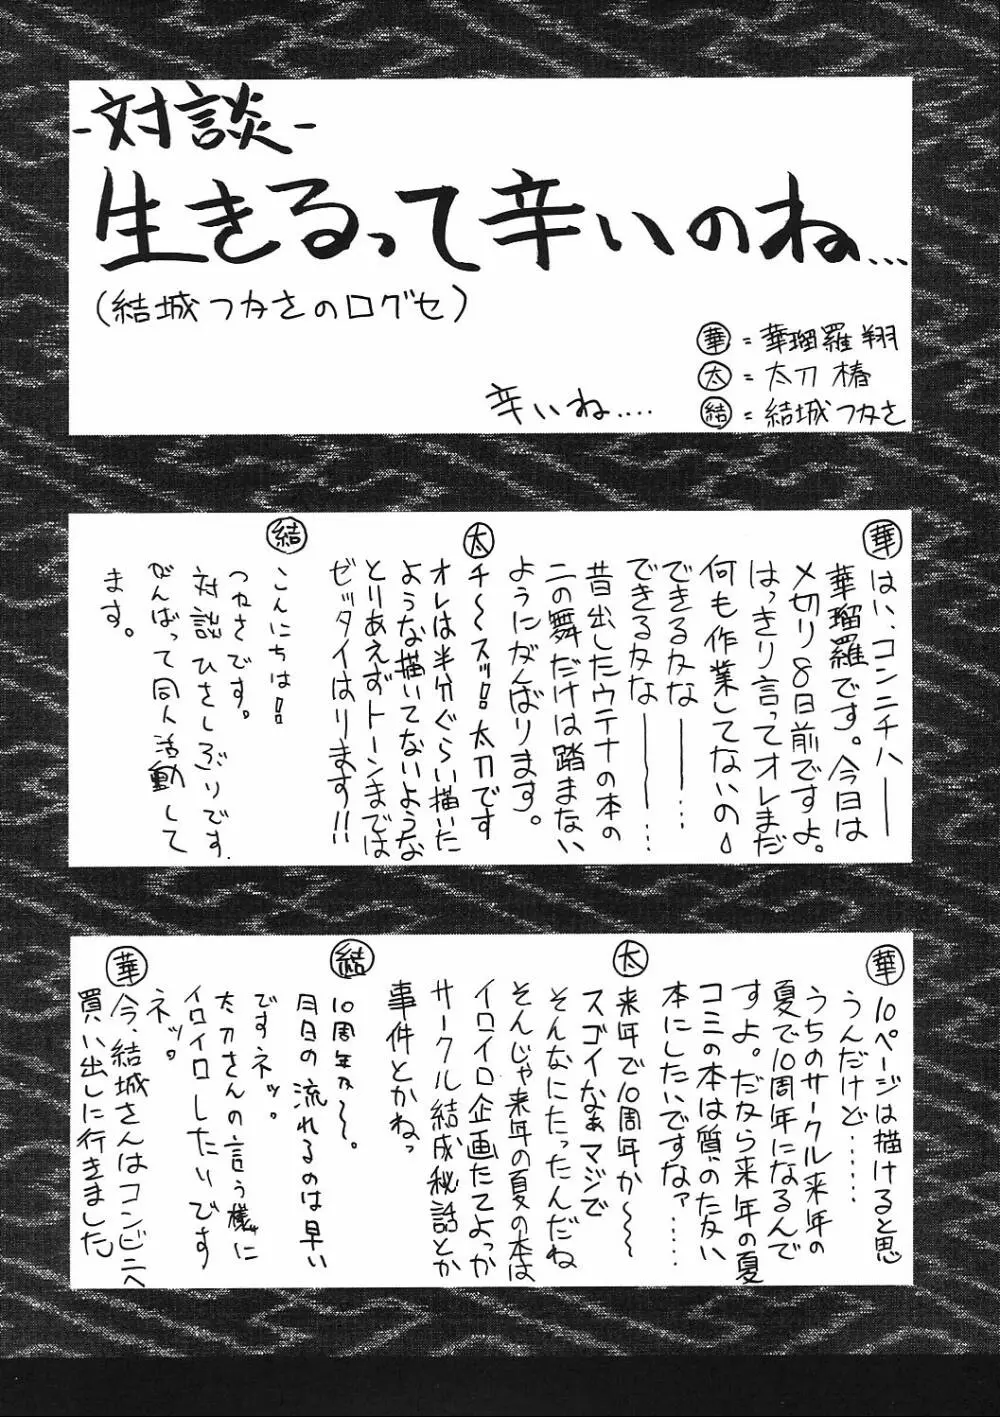 -対談-
生きるって辛いのね…
(結城つかさのログセ)
辛いね‥‥
華=華瑠羅翔
太=太刀椿
結=結城つかさ
華 はい、コンニチハ――
華瑠羅です。今日は
〆切り8日前ですよ。
はっきり言ってオレまだ
何も作業してないの
できるかな――…
できるかな――…
昔出したウテナの本の
二の舞だけは踏まない
ようにがんばります。
太 チ〜〜スッ!! 太刀です
オレは半分ぐらい描いた
ような描いてないような
とりあえずトーンまでは
ゼッタイはります!!
結 こんにちは!!
つかさです。
対談ひさしぶりです
がんばって同人活動して
ます。
華 10ページは描けると思
うんだけど……
うちのサークル来年の
夏で10周年になるんで
すよ。だから来年の夏
コミの本は質のたかい
本にしたいですなァ……
太 来年で10周年か〜〜〜
スゴイなぁマジで
そんなにたったんだね
そんじゃ来年の夏の本は
イロイロ企画たてよっか
サークル結成秘話とか
事件とかねっ
結 10周年か〜〜。
月日の流れるのは早い
ですネッ。
太刀さんの言う様に
イロイロしたいです
ネッ。
華 今、結城さんはコンビニへ
買い出しに行きました